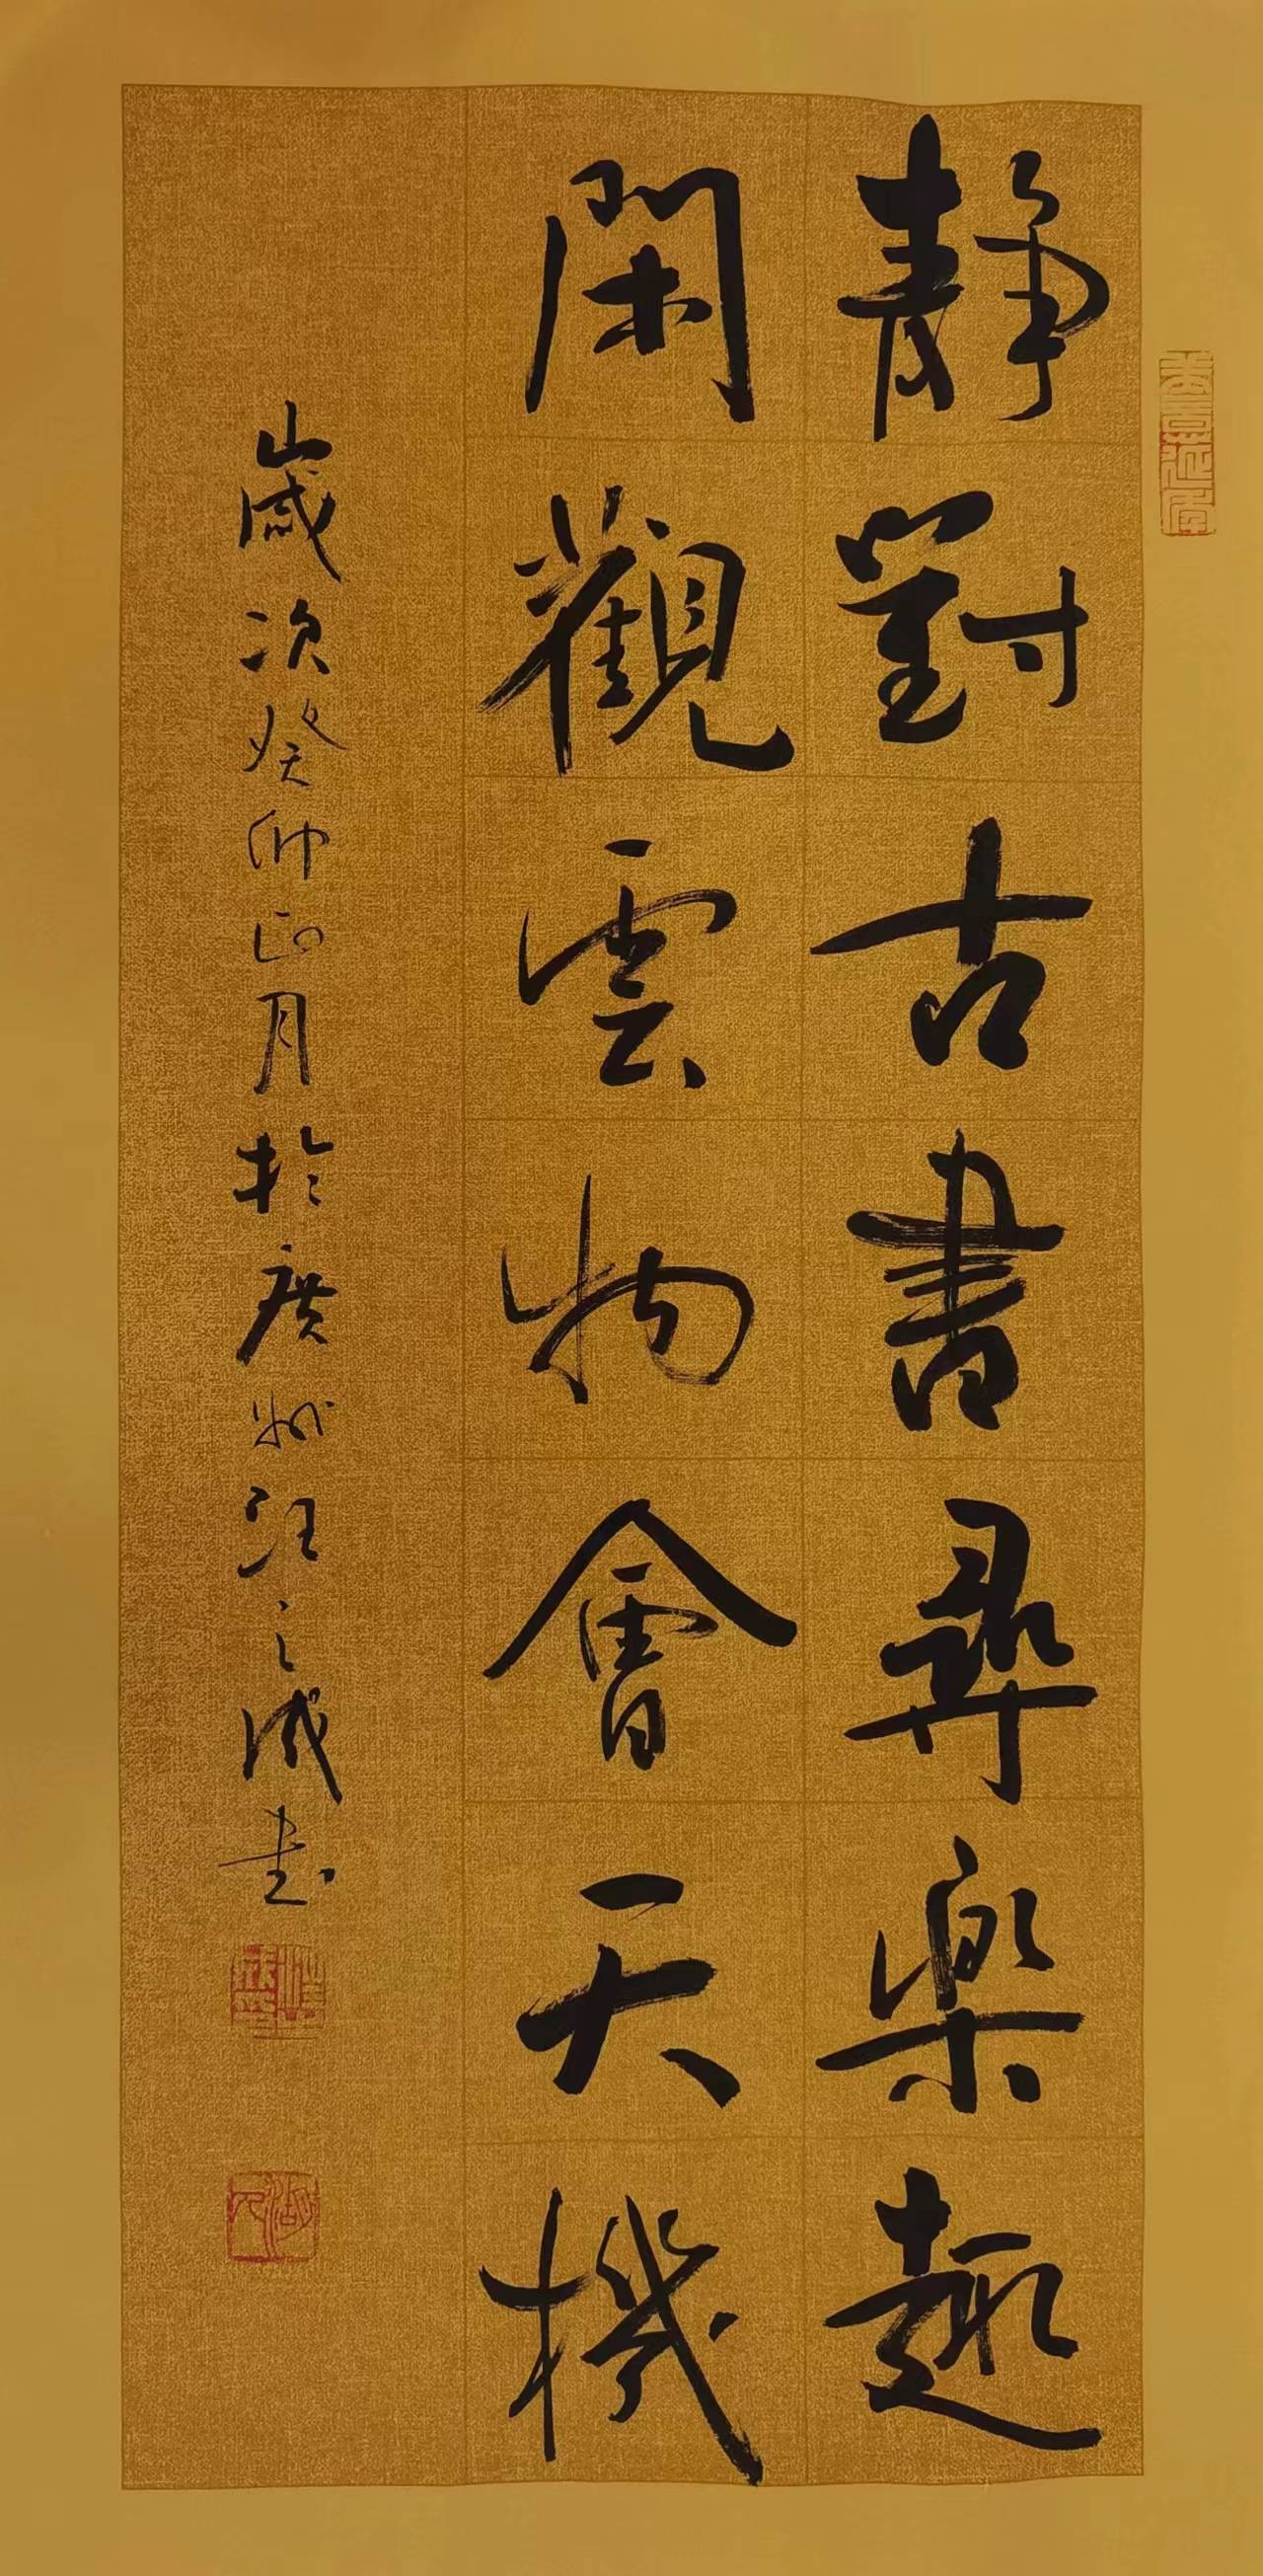 靜對古書尋樂趣
閑觀雲物會天機
歲次癸卯正月於廣州汪之成書